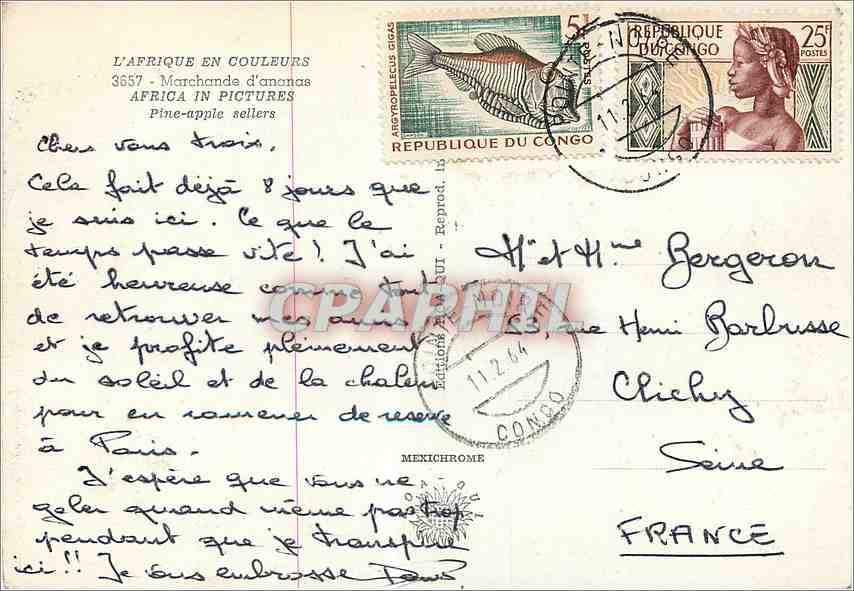 L'AFRIQUE EN COULEURS
3657 - Marchande d'ananas
AFRICA IN PICTURES
Pine-apple sellers
ARGYROPELECUS GIGAS
5F
POSTES
REPUBLIQUE DU CONGO
REPUBLIQUE
DU CONGO
25F
POSTES
Chers vous trois,
Cela fait déjà 8 jours que
je suis ici. Ce que le
temps passe vite! J'ai
été heureuse comme tout
de retrouver mes amis
et je profite pleinement
du soleil et de la chaleur
pour en ramener de reserve
à Paris.
J'espère que vous ne
geler quand même pas trop
pendant que je transpire
ici!! Je vous embrasse
Mr et Mme Bergeron
rue Henri Barbusse
Clichy
Seine
FRANCE
POINTE NOIRE
11.2.64
CONGO
Reprod. In
MEXICHROME
CPARPHIL